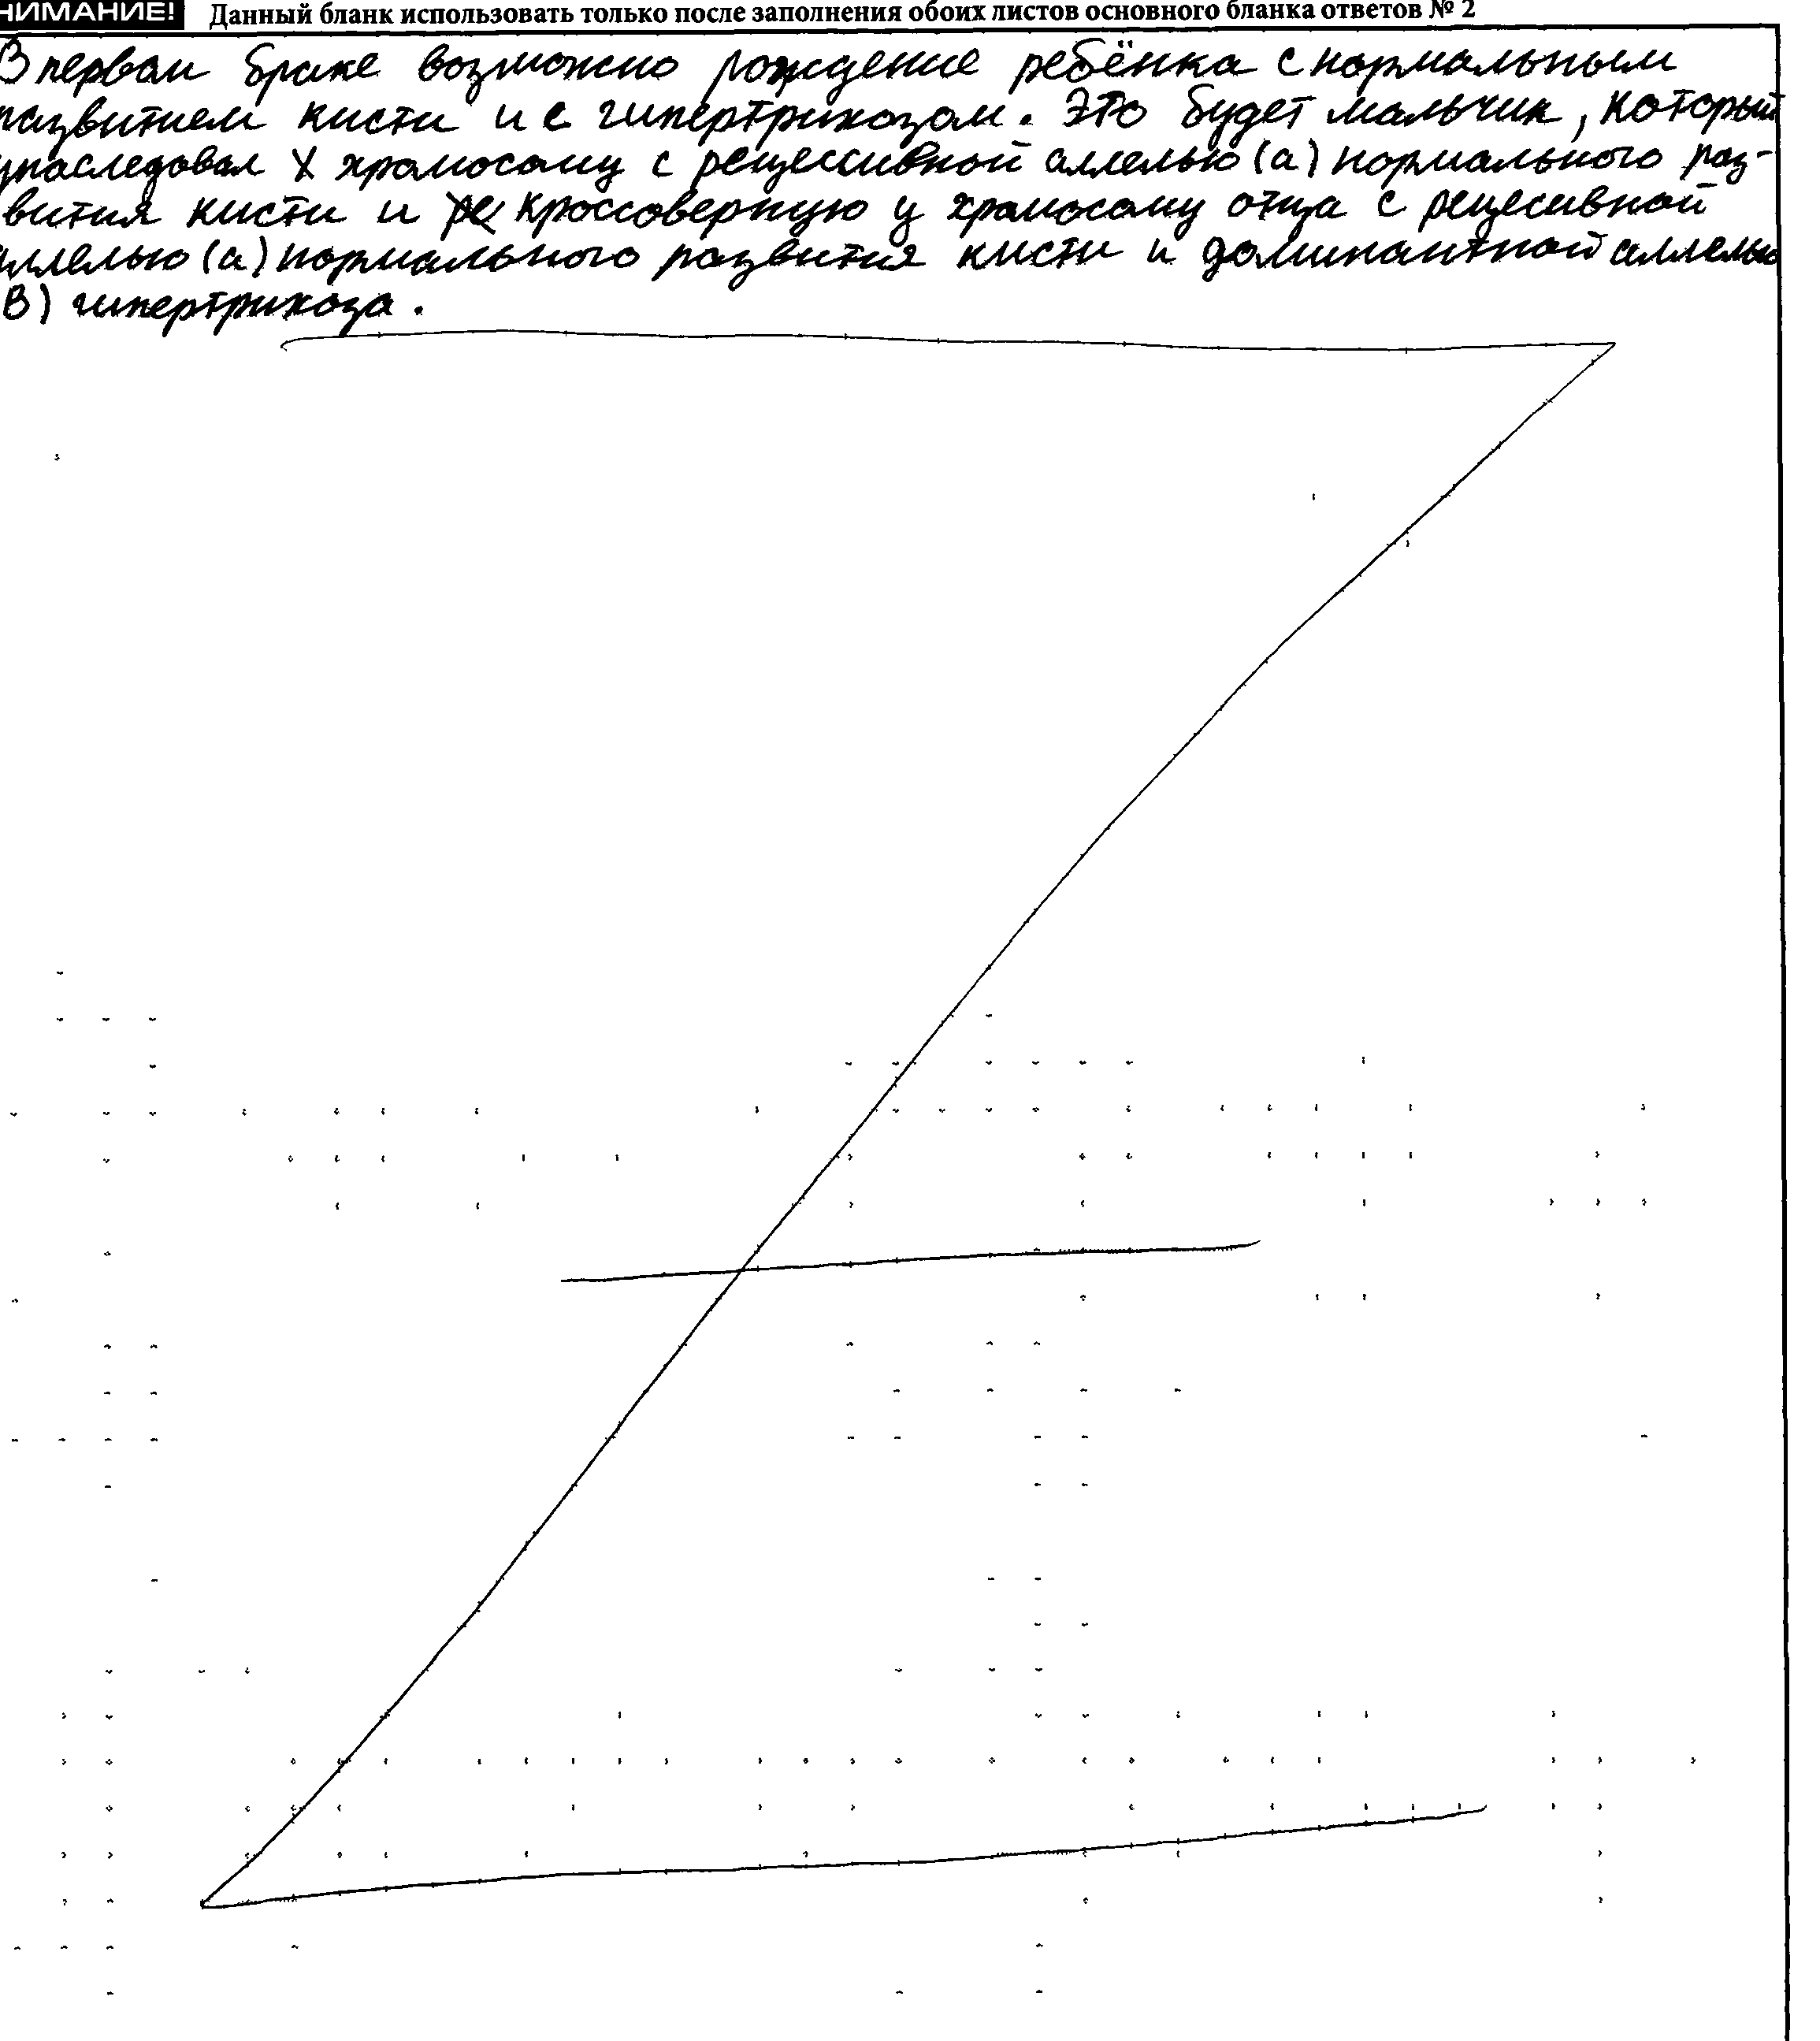 НИМАНИЕ! Данный бланк использовать только после заполнения обоих листов основного бланка ответов № 2
В первом браке возможно рождение ребёнка с нормальным
развитием кисти и с гипертрихозом. Это будет мальчик, который
унаследовал X хромосому с рецессивной аллелью (а) нормального раз-
вития кисти и кроссоверную y хромосому отца с рецесивной
аллелью (а) нормального развития кисти и доминантной аллелью
(В) гипертрихоза.